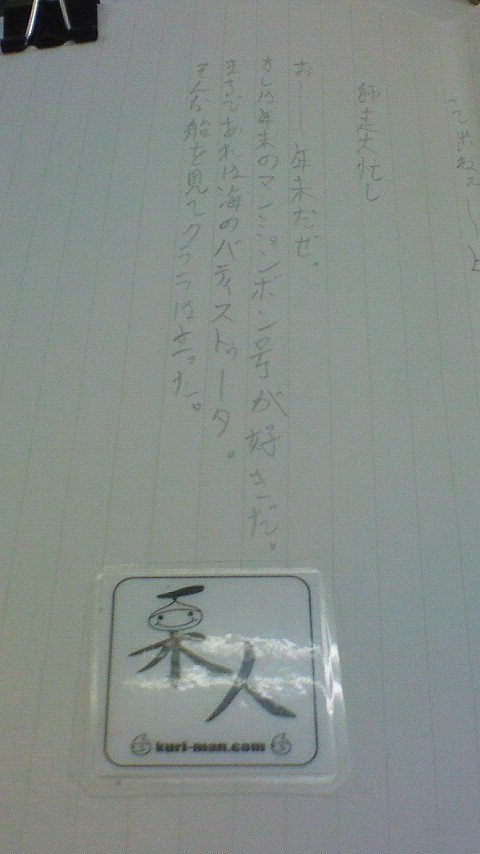 て出ねぇ
師走大忙し
お――年末だぜ。
オレは年末のマンピンボン号が好きだ。
まるであれは海のバティストゥータ。
そんな船を見てクララは立った。
栗人
kuri-man.com